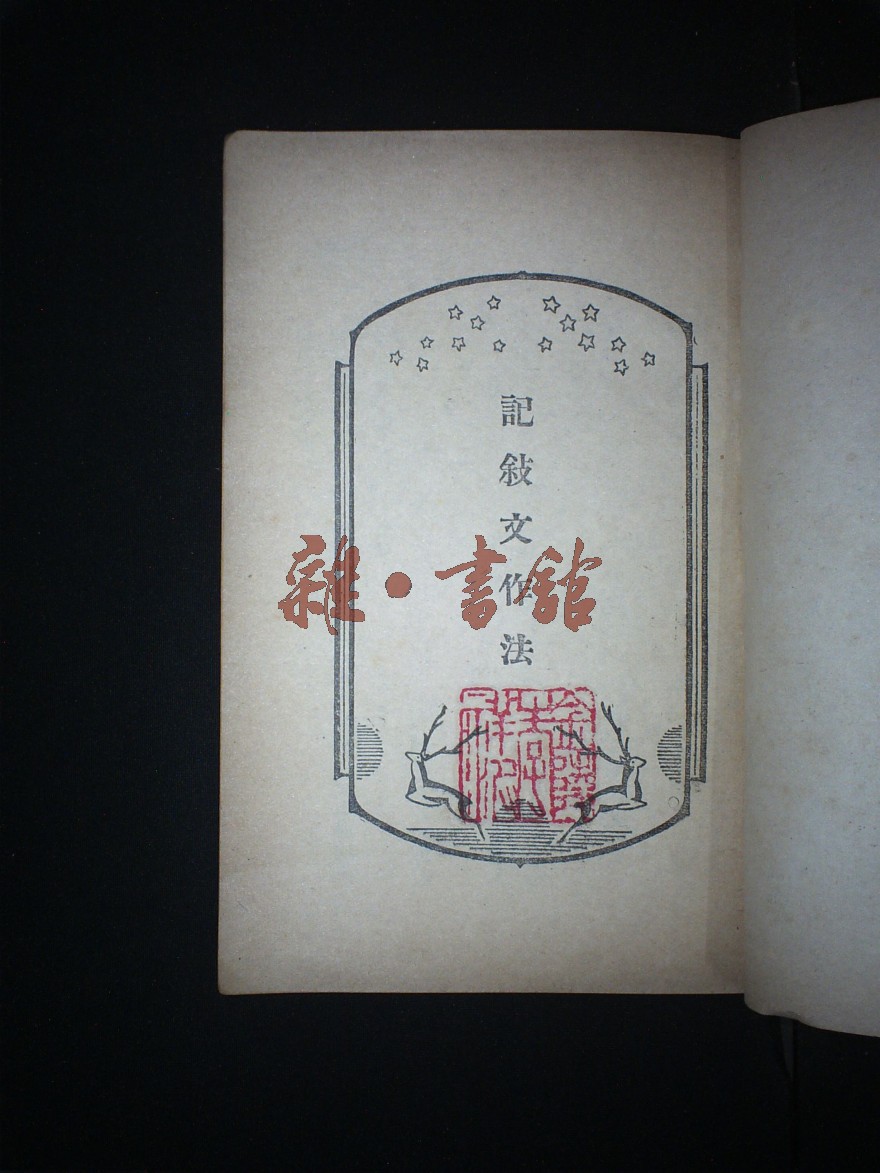 記敍文作法
雜·書館